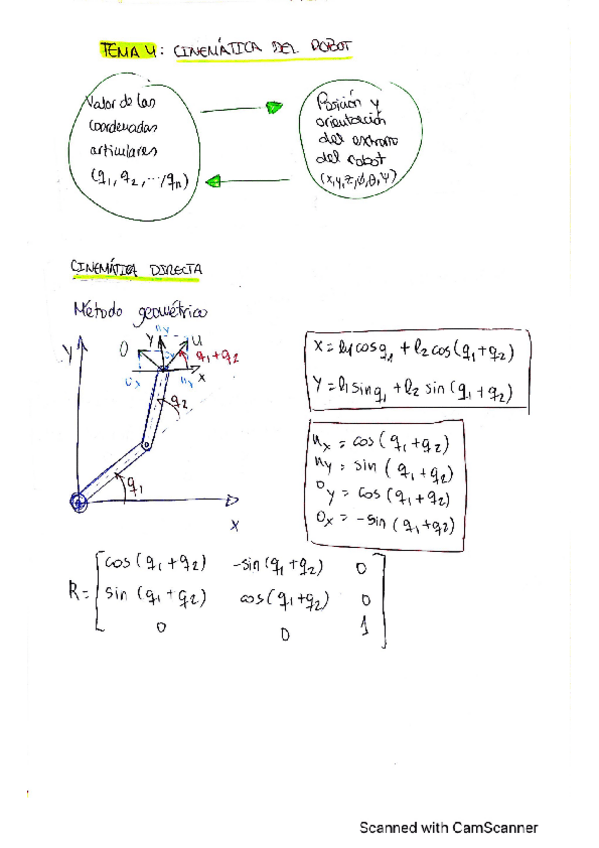 TEMA 4: CINEMÁTICA DEL ROBOT
Valor de las
coordenadas
articulares
(q1, q2, ..., qn)
Posición y
orientación
del extremo
del robot
(x,y,z,φ,θ,ψ)
CINEMÁTICA DIRECTA
Método geométrico
Y
O
Y
ny
u
q1+q2
ox
nx
x
q2
q1
X
X = l1 cos q1 + l2 cos(q1+q2)
Y = l1 sin q1 + l2 sin(q1+q2)
nx = cos(q1+q2)
ny = sin(q1+q2)
oy = cos(q1+q2)
ox = -sin(q1+q2)
cos(q1+q2) -sin(q1+q2) 0
R = sin(q1+q2) cos(q1+q2) 0
0 0 1
Scanned with CamScanner